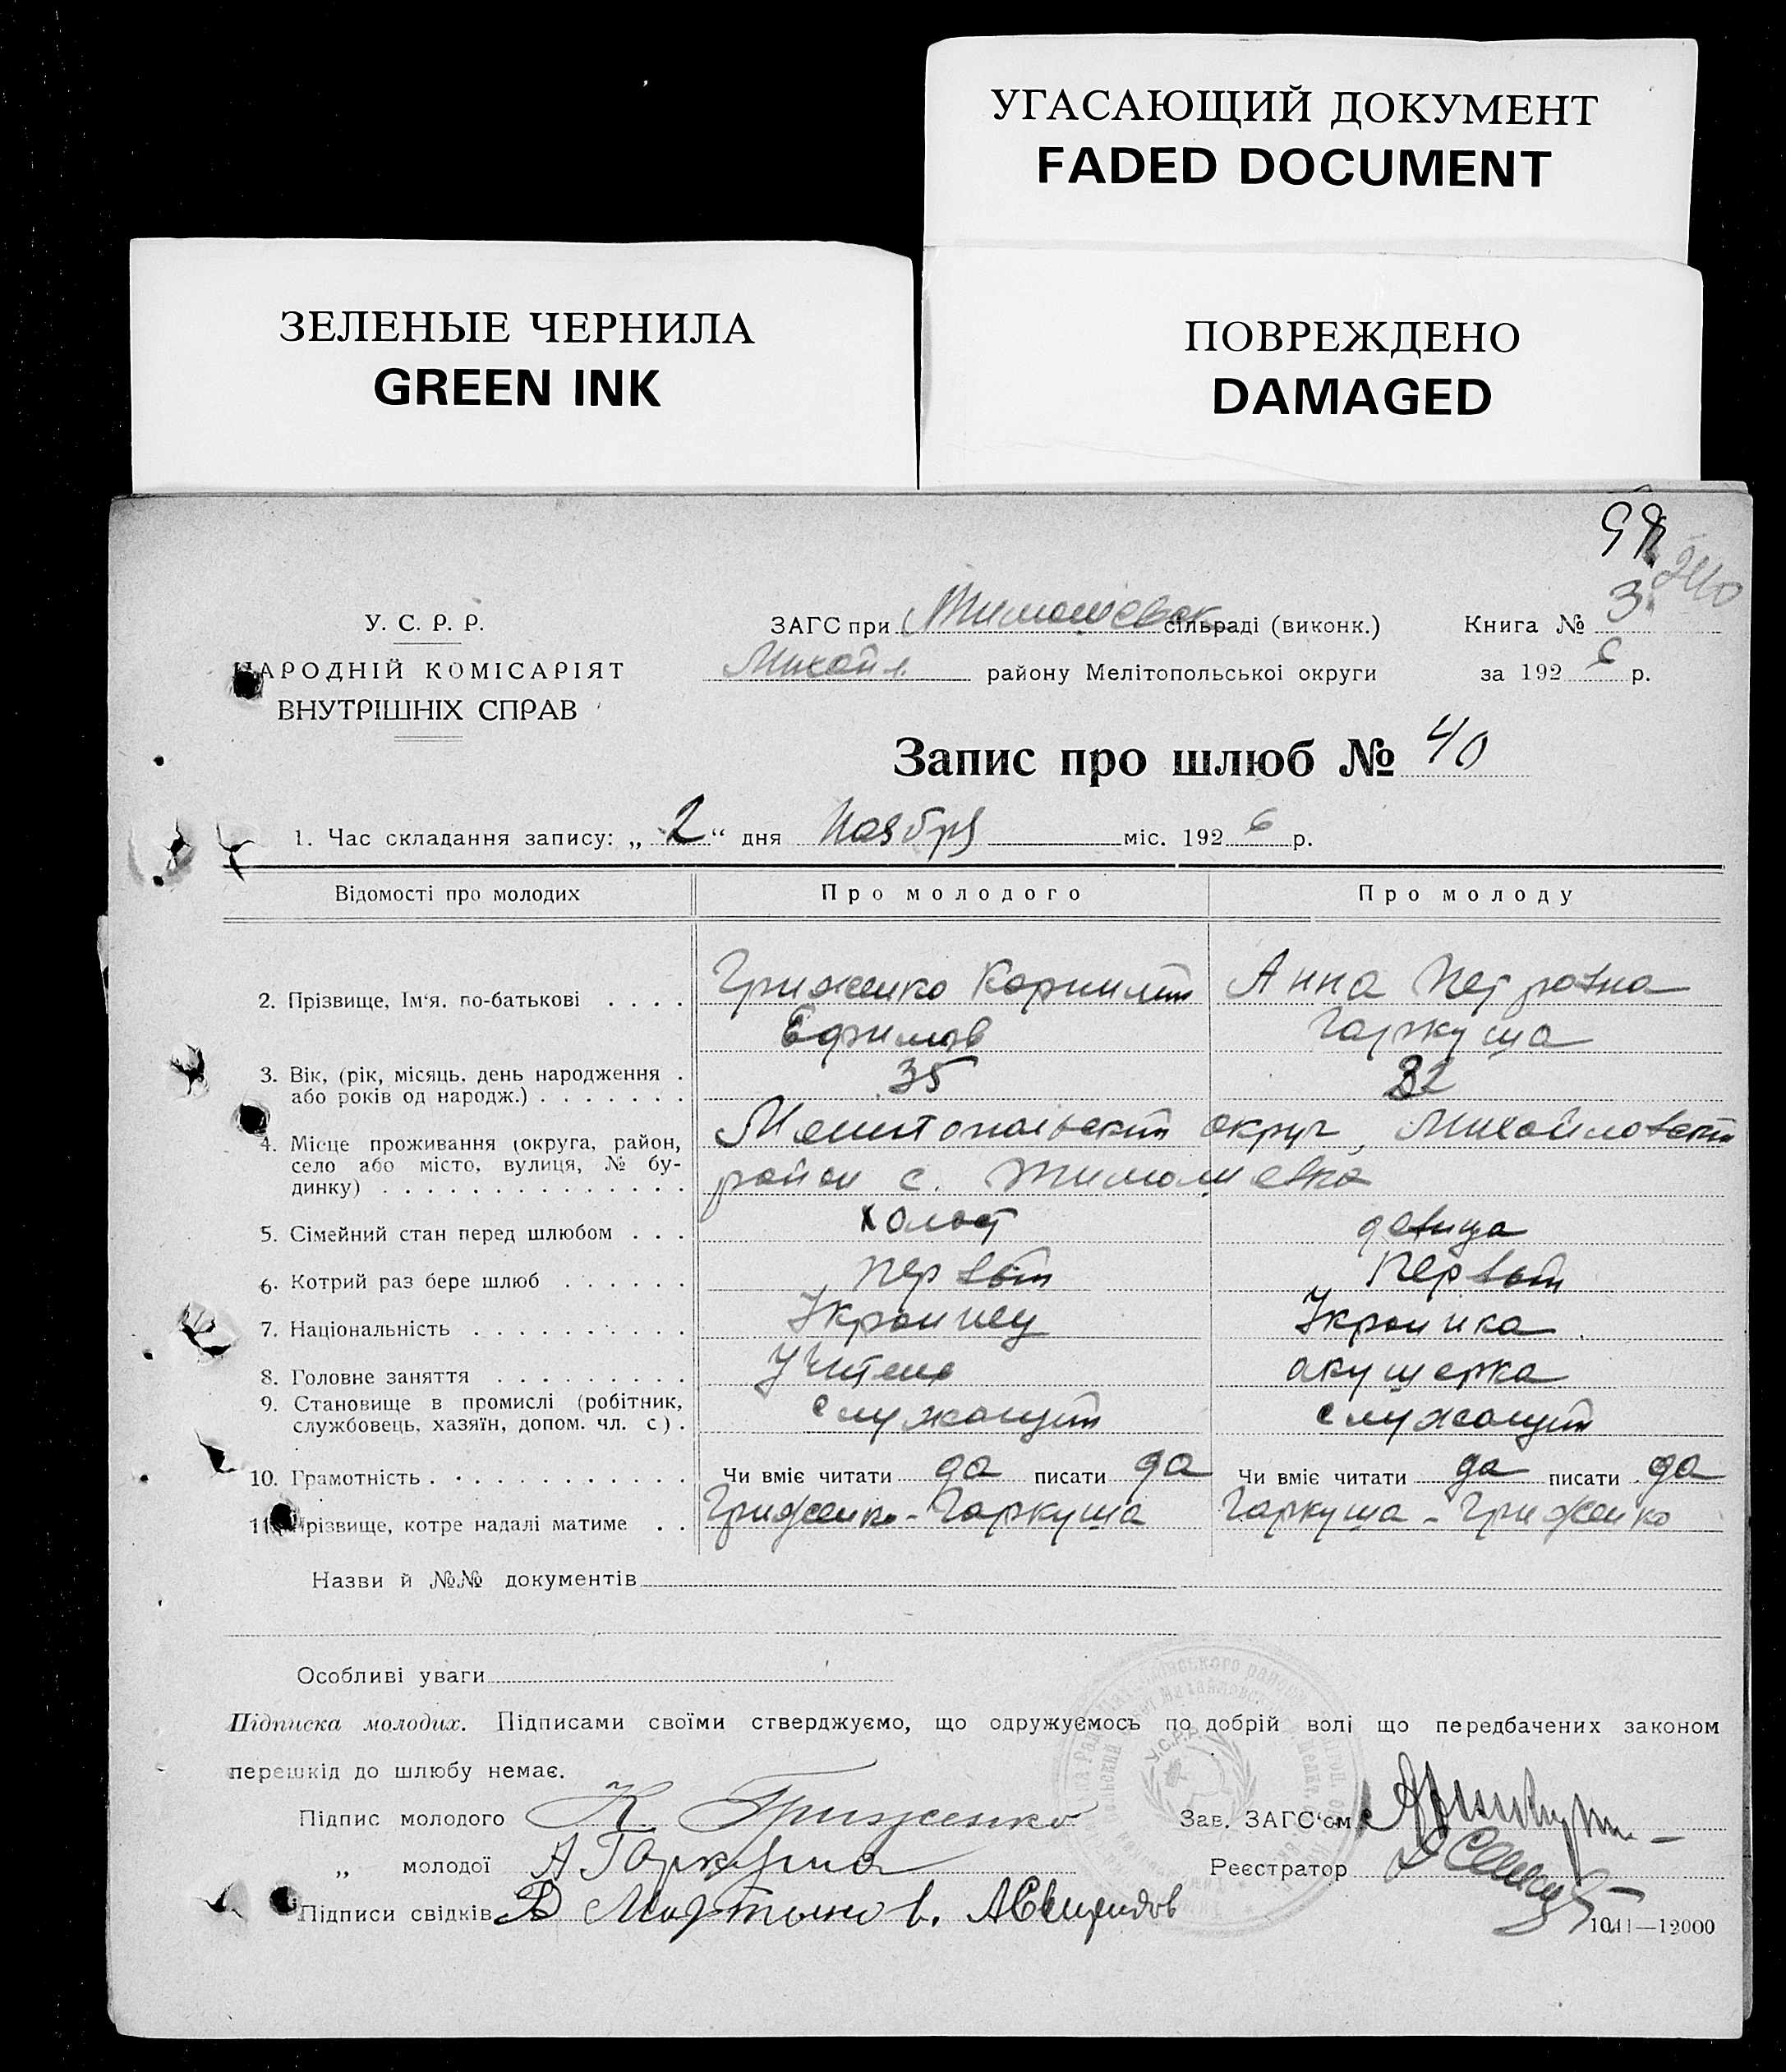 УГАСАЮЩИЙ ДОКУМЕНТ
FADED DOCUMENT
ЗЕЛЕНЫЕ ЧЕРНИЛА
GREEN INK
ПОВРЕЖДЕНО
DAMAGED
У. С. Р. Р.
НАРОДНІЙ КОМІСАРІЯТ
ВНУТРІШНІХ СПРАВ
ЗАГС при Тимошевск сільраді (виконк.)
Михайл. району Мелітопольської округи
Книга № 3
за 1926 р.
Запис про шлюб № 40
1. Час складання запису: „ 2 “ дня Ноября міс. 1926 р.
Відомості про молодих Про молодого Про молоду
2. Прізвище, Ім‘я, по-батькові . . . . Гриженко Корнилий Анна Петровна
Ефимов Гаркуша
3. Вік, (рік, місяць, день народження . 35 32
або років од народж.) . . . . . . .
4. Місце проживання (округа, район, Мелитопольский округ, Михайловский
село або місто, вулиця, № бу-
динку) . . . . . . . . . . . . . . район с. Тимошевка
5. Сімейний стан перед шлюбом . . . холост девица
6. Котрий раз бере шлюб . . . . . . первый Первый
7. Національність . . . . . . . . . . Украинец Украинка
8. Головне заняття . . . . . . . . . Учитель акушерка
9. Становище в промислі (робітник,
службовець, хазяїн, допом. чл. с) . служащий служащий
10. Грамотність . . . . . . . . . . . Чи вміє читати да писати да Чи вміє читати да писати да
11. Прізвище, котре надалі матиме . . Гриженко-Гаркуша Гаркуша-Гриженко
Назви й №№ документів
Особливі уваги
Підписка молодих. Підписами своїми стверджуємо, що одружуємось по добрій волі що передбачених законом
перешкід до шлюбу немає.
Підпис молодого К. Гриженко
Зав. ЗАГС‘ом
„ молодої А Гаркуша
Реєстратор
Підписи свідків Мартынов.
1041—12000
У.С.Р.Р.